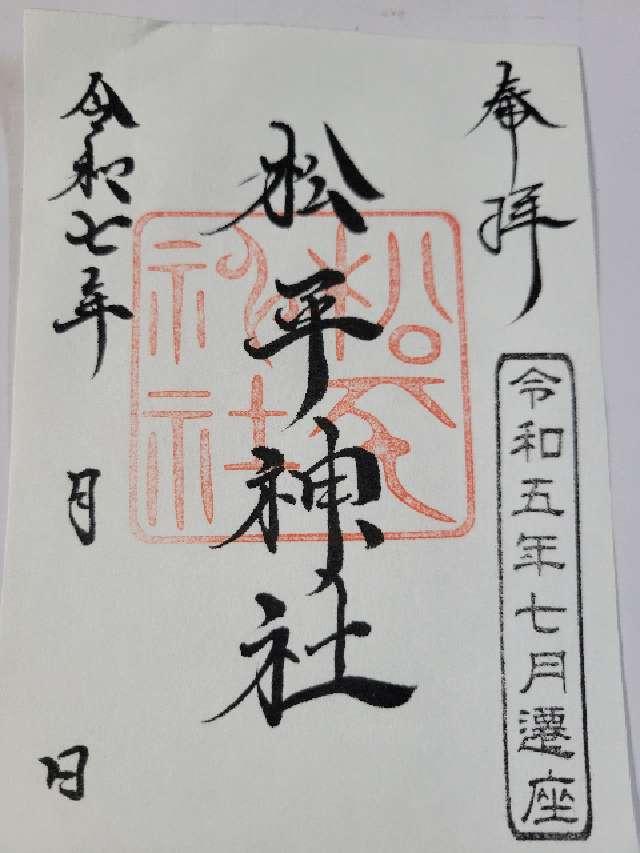 奉拝
令和五年七月遷座
松平神社
松平神社
令和七年 月 日